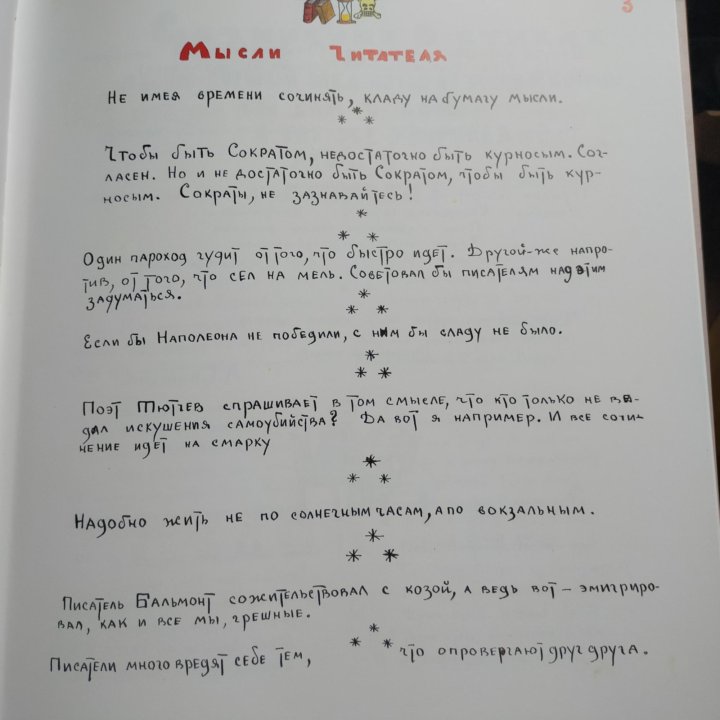 3
Мысли читателя
Не имея времени сочинять, кладу на бумагу мысли.
* * *
Чтобы быть Сократом, недостаточно быть курносым. Сог-
ласен. Но и не достаточно быть Сократом, чтобы быть кур-
носым. Сократы, не зазнавайтесь!
* * *
Один пароход гудит от того, что быстро идет. Другой-же напро-
тив, от того, что сел на мель. Советовал бы писателям над этим
задуматься.
* * *
Если бы Наполеона не победили, с ним бы сладу не было.
* * *
Поэт Тютчев спрашивает в том смысле, что кто только не ве-
дал искушения самоубийства? Да вот я например. И все сочи-
нение идет на смарку
* * *
Надобно жить не по солнечным часам, а по вокзальным.
* * *
Писатель Бальмонт сожительствовал с козой, а ведь вот – эмигриро-
вал, как и все мы, грешные.
* * *
Писатели много вредят себе тем, что опровергают друг друга.